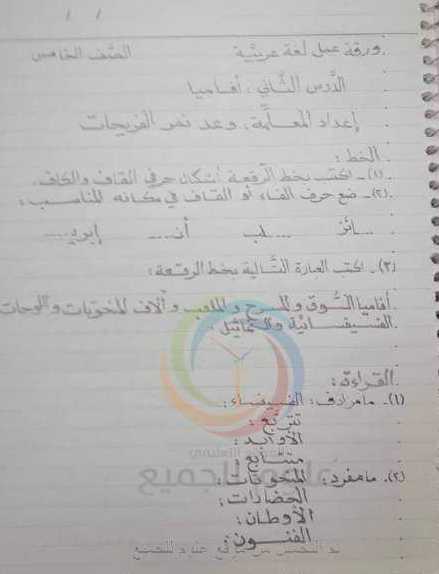 / /
ورقة عمل لغة عربيّة. الصّف الخامس
الدّرس الثّاني : أفاميا
إعداد المعلّمة : وعد نصر الفريحات
الخط :
(١) - اكتب بخط الرقعة أشكال حرفي القاف والكاف.
(٢) - ضع حرف الفاء أو القاف في مكانه المناسب :
....ائز ....لب أنـ.... إبريـ....
(٣) - اكتب العبارة التّالية بخط الرقعة :
أفاميا السّوق والمسرح والملعب وآلاف المنحوتات واللوحات
الفسيفسائيّة والتماثيل.
القراءة :
(١) - ما مرادف : الفسيفساء :
تتربّع :
الأوابد :
متتابع :
(٢) - ما مفرد : المنحوتات :
الحضارات :
الأوطان :
الفنون :